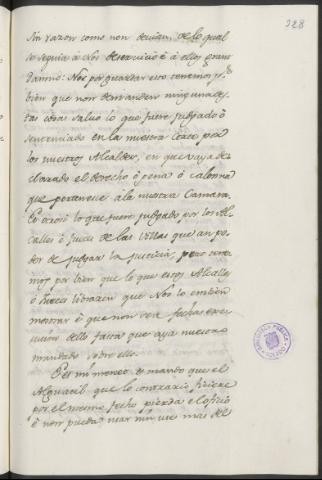 328
sin razon como non devian, de lo qual
se seguia à Nos deservicio è à ellos grant
danno: Nos por guardar esto tenemos por
bien que non demanden ninguna des
tas cosas salvo lo que fuere judgado ò
sentenciado en la nuestra Corte por
los nuestros Alcaldes, en que vaya de
clarado el derecho ò pena ò calonna
que pertenesce à la nuestra Camara.
lo que fuere judgado por los Al
calles è Jueces de las Villas que an po
der de judgar la justicia, pero tene
mos por bien que lo que estos Alcalles
è Jueces libraren que Nos lo embien
mostrar è que non sea fecha exe
cucion dello fasta que aya nuestro
mandado sobre ello.
mando que el
Alguacil que lo contrario ficiere
por el mesmo fecho pierda el oficio
è non pueda usar nin mas del
BIBLIOTECA PUBLICA
TOLEDO